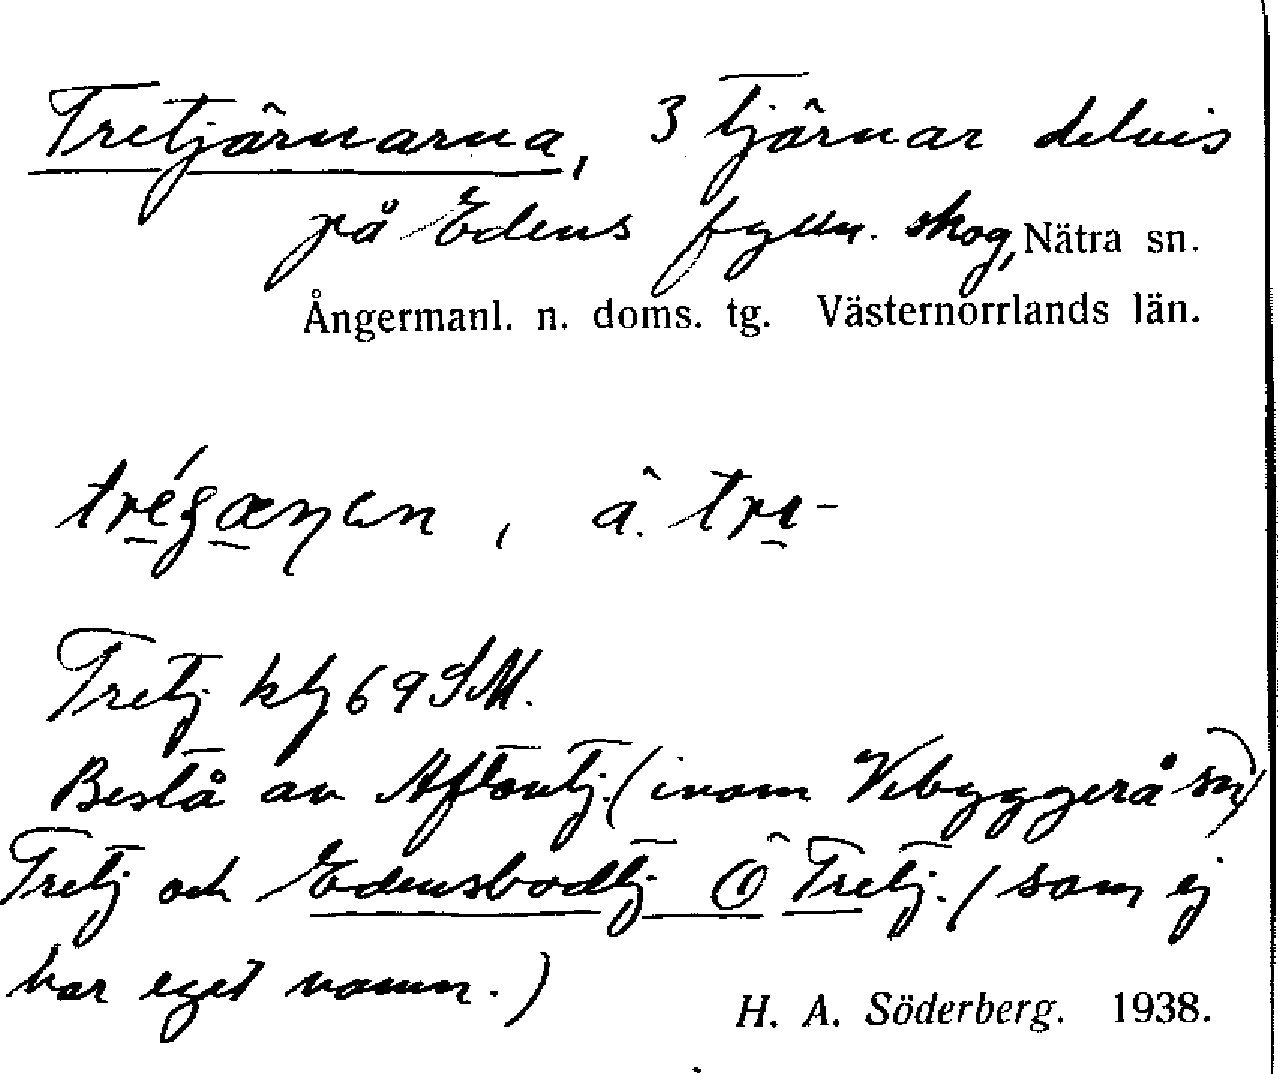 Tretjärnarna, 3 tjärnar delvis
på Edens fgmn. skog, Nätra sn.
Ångermanl. n. doms. tg. Västernorrlands län.
, ä. tre-
Tretj kbj 69 SM.
Bestå av Aftontj. (inom Vibyggerå sn)
Tretj och Edensbodtj Ö Tretj. (som ej
har eget namn.)
H. A. Söderberg. 1938.